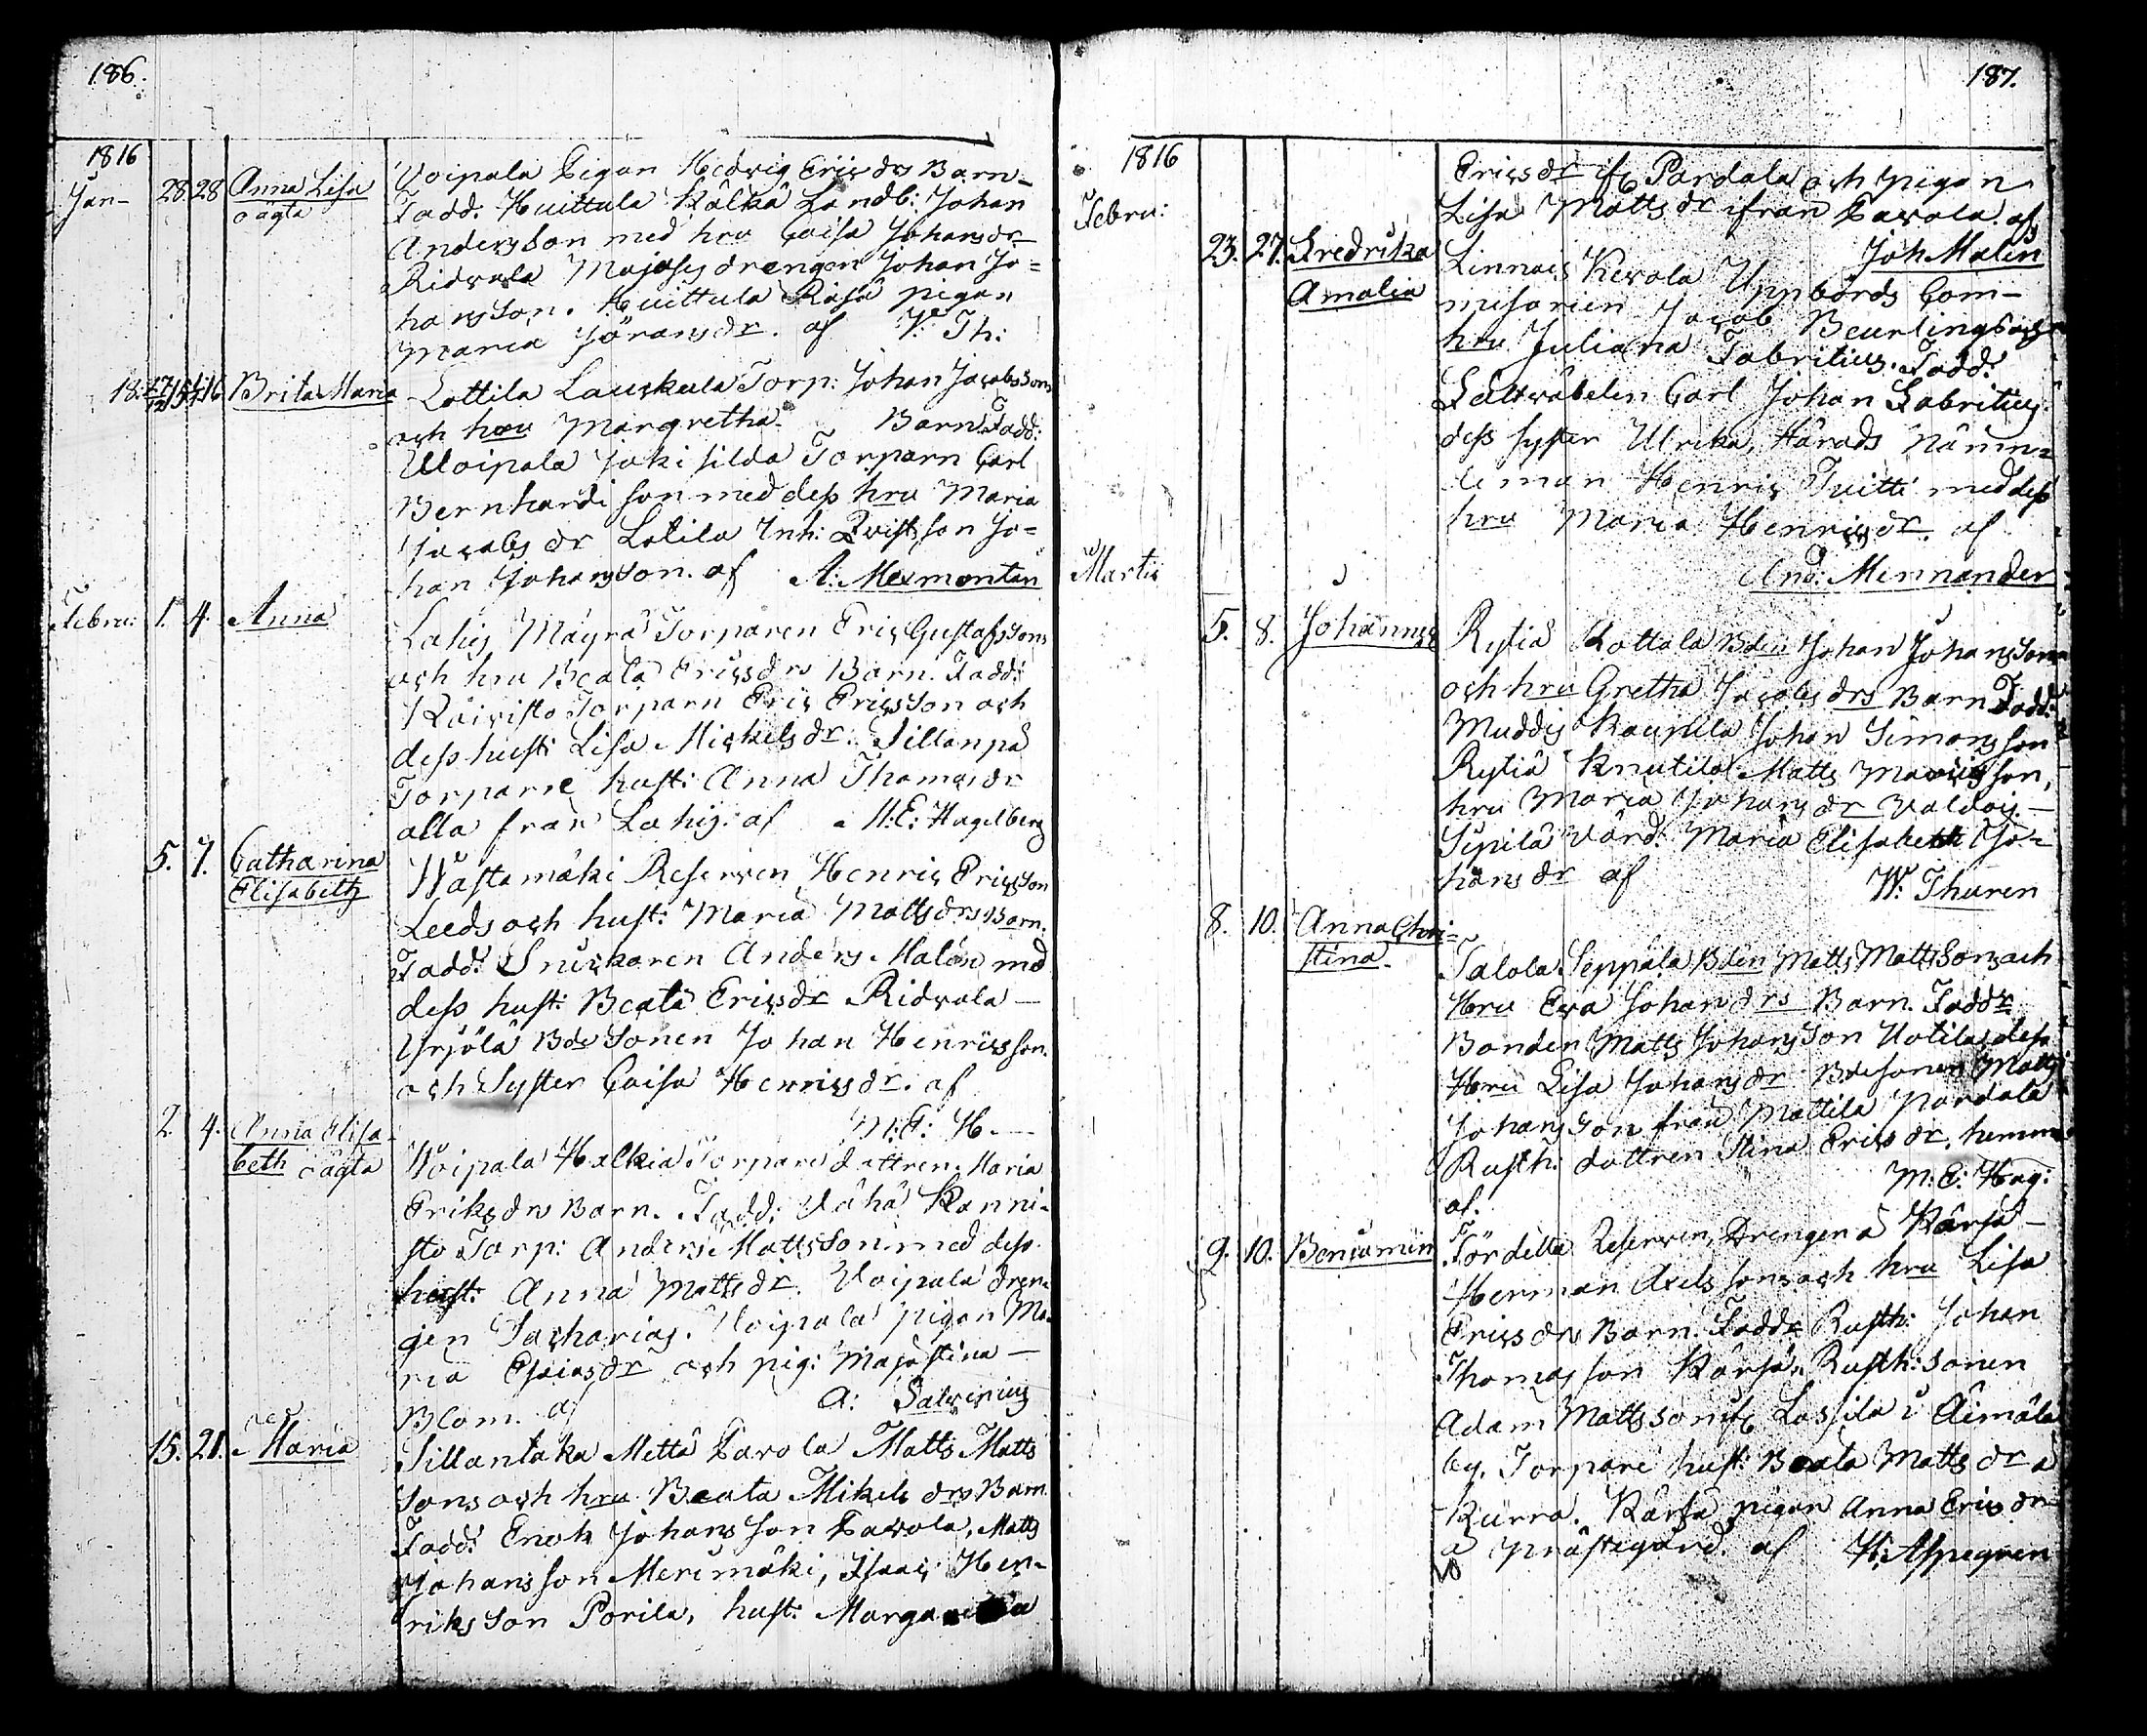 186.
1816
Jan- 28. 28 Anna Lisa Voipala Pigan Hedvig Ericsdrs Barn-
oägta Fadd. Huittula Kälkä Landb: Johan
Andersson med hru Caisa Johansdr
Ridvala Majasis drengen Johan Jo=
hansson. Huittula Rasä pigan
Maria Jöransdr. af V: Th:
18: 27/12 15 1/1 16 Brita Maria Lottila Lauskula Torp: Johan Jacobssons
och hru Margretha Barn. Fadd:
Uloipala Jokisilda Torparn Carl
Bernhardison med dess hru Maria
Jacobsdr Lotila Inh: Qvists son Jo=
han Johansson. af A: Mexmontan
Febru: 1. 4. Anna Lahis Mäyrä Torparen Eric Gustafssons
och hru Beata Ericsdrs Barn. Fadd:
Koivisto Torparn Eric Ericsson och
dess hust: Lisa Mickelsdr. Sillanpä
Torpare hust: Anna Thomasdr
alla från Lahis. af M:E: Hagelberg
5. 7. Catharina
Elisabeth Wästamäki Reserven Henric Ericsson
Leeds och hust: Maria Mattsdrs Barn.
Fadd: Snickaren Anders Malén med
dess hust: Beata Ericsdr Ridvala-
Yrjölä Bde Sonen Johan Henricsson.
och Syster Caisa Henricsdr. af
M:E: H.
2. 4. Anna Elisa-
beth oägta Woipala Halkia Torpare dottren Maria
Eriksdrs Barn. Fadd: Vähä Kanni-
sto Torp: Anders Mattsson med dess
hust: Anna Mattsdr. Voipala dren-
gen Zacharias. Voipala pigan Ma-
ria Esaiasdr och pig: Maja Stina-
Blom. af A: Salvenius
15. 21. Maria Sillantaka Mettä Pavola Matts Matts
Sons och hru Beata Mikels drs Barn
Fadd: Enok Johansson Pavola, Matts
Johansson Merimäki, Isaac Hen-
riksson Porila, hust: Margaretha
187.
1816
Febru: Ericsdr ifr Pardala och pigan
Lisa Mattsdr ifrån Pavola. af
Joh Malin
23. 27. Fredrika
Amalia Linnais Kevola Uppbörds Com-
misarien Jacob Beurlings och
hru Juliana Fabritius. Fadd:
Fältväbelen Carl Johan Fabritius
dess syster Ulrika, Härads Nämn=
deman Henric Tuitti med dess
hru Maria Henricsdr. af
And: Mennander
Martii
5. 8. Johannes Rytiä Kottola Bden Johan Johanssons
och hru Gretha Jacobsdrs Barn Fadd:
Muddis Kaupila Johan Simonsson
Rytiä Knutila Matts Mattsson,
hru Maria Johansdr Valdois-
Sipilä Värd: Maria Elisabeth Jo-
hansdr af W: Thuren
8. 10. Anna Chri=
stina. Talola Seppälä Bden Matts Mattssons och
Hru Eva Johandrs Barn. Faddr
Bonden Matts Johansson Uotila, dess
Hru Lisa Johansdr Bdesonen Matts
Johansson från Mattila Pardala
Rusth: dottren Stina Ericsdr. hemma
af. M: E: Hag:
9. 10. Benjamin För detta Reserven, Drengen å Kärsä-
Herman Axelssons och hru Lisa
Ericsdrs Barn. Faddr Rusth: Johan
Thomasson Kärsä. Rusth: sonen
Adam Mattsson ifr Lassila i Äimälä
by. Torpare hust: Beata Mattsdr å
Kurra. Kärsä pigan Anna Ericsdr
å prästegård. af H: Aspegren